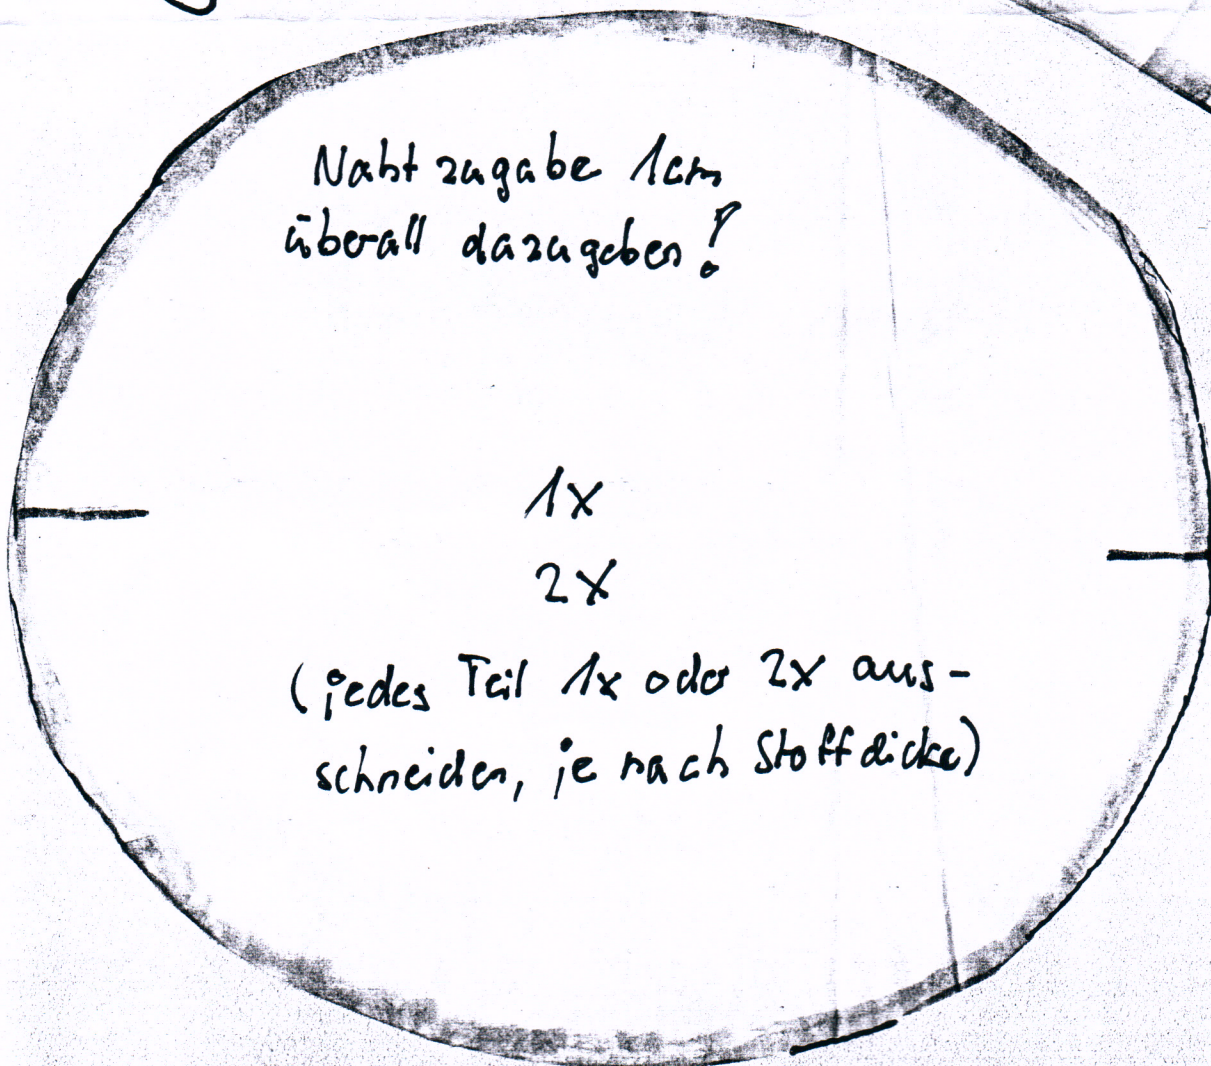 Nahtzugabe 1cm
überall dazugeben!
1x
2x
(jedes Teil 1x oder 2x aus-
schneiden, je nach Stoffdicke)